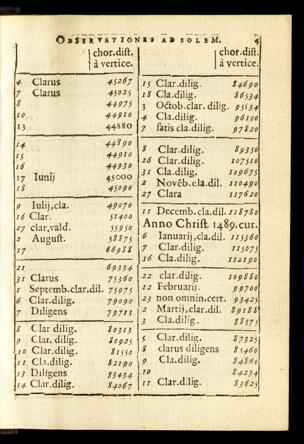 OBSERVATIONES AD SOLEM. 4
chor.dist.
à vertice.
4 Clarus 45267
7 Clarus 45025
8 44975
10 44910
13 44880
14 44890
15 44910
16 44930
17 Iunij 45000
18 45090
9 Iulij,cla. 49070
16 Clar. 51400
27 clar,vald. 55950
2 August. 58875
17 66988
21 69334
31 Clarus 75360
1 Septemb.clar.dil. 75975
6 Clar.dilig. 79090
7 Diligens 79713
8 Clar dilig. 80313
9 Clar.dilig. 80925
10 Clar.dilig. 81550
11 Cla.dilig. 82190
13 Diligens 83434
14 Clar.dilig. 84067
chor.dist.
à vertice.
15 Clar.dilig. 84690
18 Cla.dilig. 86534
3 Octob.clar.dilig. 95534
4 Cla.dilig. 96100
7 satis cla.dilig. 97820
8 Clar.dilig. 89350
26 Clar.dilig. 107510
31 Cla.dilig. 109675
2 Novēb.cla.dil. 110490
27 Clara 117620
11 Decemb.cla.dil. 118780
Anno Christi 1489.cur.
6 Ianuarij,cla.dil. 115360
7 Clar.dilig. 115075
16 Cla.dilig. 112190
22 clar.dilig. 109880
12 Februarij. 99700
23 non omnin.cert. 93425
2 Martij,clar.dil. 89188
3 Cla.dilig. 88575
5 Clar.dilig. 87325
8 clarus diligens 85460
9 Cla.dilig. 84860
10 84234
11 Clar.dilig. 83625